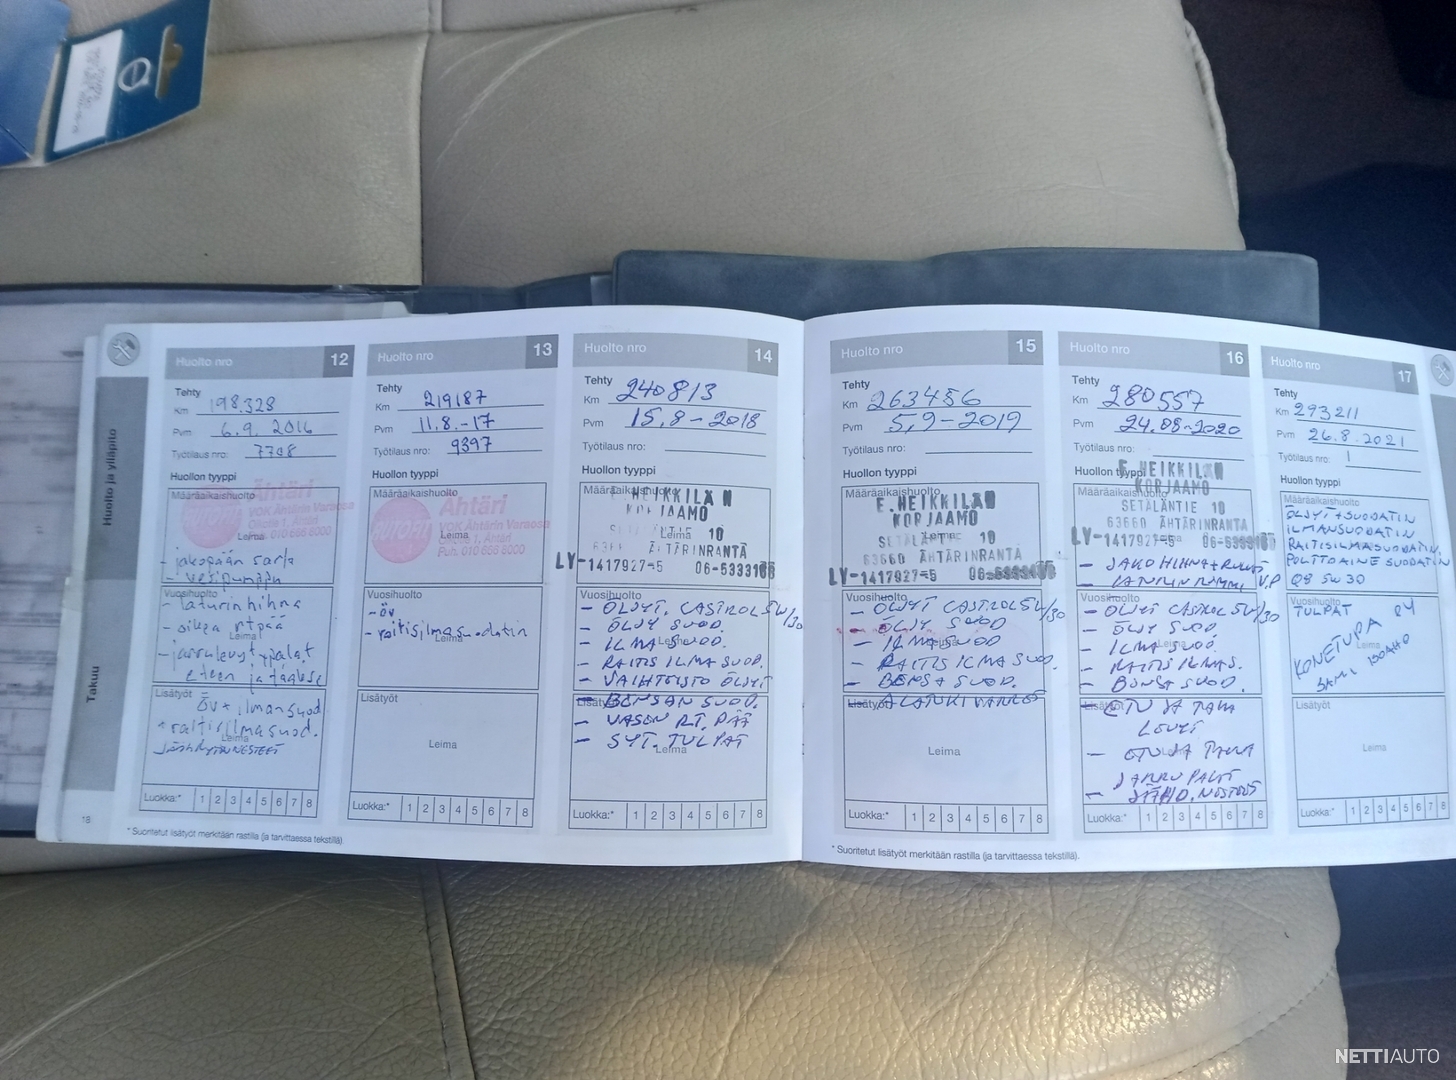 Huolto ja ylläpito
Takuu
18
Huolto nro 12
Tehty
Km 198.328
Pvm 6.9. 2016
Työtilaus nro: 7708
Huollon tyyppi
Määräaikaishuolto
Ähtäri
VOK Ähtärin Varaosa
Leima
- jakopään sarja
- vesipumppu
Vuosihuolto
- laturinhihna
- oikea rtpää
Leima
- jarrulevyt+palat
eteen ja taakse
Lisätyöt
öv + ilmansuod
+ raitisilmasuod.
Leima
JÄÄHDYTINNESTEET
Luokka:* 1 2 3 4 5 6 7 8
* Suoritetut lisätyöt merkitään rastilla (ja tarvittaessa tekstillä).
Huolto nro 13
Tehty
Km 219187
Pvm 11.8.-17
Työtilaus nro: 9397
Huollon tyyppi
Määräaikaishuolto
Ähtäri
VOK Ähtärin Varaosa
Ollictie 1, Ähtäri
Puh. 010 698 8000
Leima
Vuosihuolto
- öv
- raitisilmasuodatin
Leima
Lisätyöt
Leima
Luokka:* 1 2 3 4 5 6 7 8
Huolto nro 14
Tehty
Km 240813
Pvm 15.8-2018
Työtilaus nro:
Huollon tyyppi
Määräaikaishuolto
HEIKKILÄ
KORJAAMO
Leima 10
ÄHTÄRINRANTA
LY-1417927-5
Vuosihuolto
- ÖLJYT. CASTROL 5W/30
- ÖLJY SUOD.
- ILMA SUOD.
Leima
- RAITIS ILMA SUOD.
- VAIHTEISTO ÖLJYT
- BENSAN SUOD.
Lisätyöt
- VASEN RT. PÄÄ
- SYT. TULPAT
Leima
Luokka:* 1 2 3 4 5 6 7 8
Huolto nro 15
Tehty
Km 263486
Pvm 5.9-2019
Työtilaus nro:
Huollon tyyppi
Määräaikaishuolto
E. HEIKKILÄ
KORJAAMO
Leima 10
63660 ÄHTÄRINRANTA
LY-1417927-5
Vuosihuolto
- ÖLJYT CASTROL 5W/30
- ÖLJY SUOD
- ILMA SUOD
Leima
- RAITIS ILMA SUOD.
- BENSA SUOD.
Lisätyöt
- ALATUKIVARRET
Leima
Luokka:* 1 2 3 4 5 6 7 8
* Suoritetut lisätyöt merkitään rastilla (ja tarvittaessa tekstillä).
Huolto nro 16
Tehty
Km 280557
Pvm 24.08-2020
Työtilaus nro:
Huollon tyyppi
Määräaikaishuolto
E. HEIKKILÄ
KORJAAMO
SETÄLÄNTIE 10
63660 ÄHTÄRINRANTA
LY-1417927-5
Leima
- JAKO HIHNA+RULLAT
V.P
Vuosihuolto
- ÖLJYT CASTROL 5W/30
- ÖLJY SUOD.
- ILMA SUOD.
Leima
- RAITIS ILMAS.
- BENSA SUOD.
Lisätyöt
- ETU JA TAKA
LEVYT
- ETU JA TAKA
Leima
JARRU PALAT
- JÄÄHD. NESTEET
Luokka:* 1 2 3 4 5 6 7 8
Huolto nro 17
Tehty
Km 293211
Pvm 26.8.2021
Työtilaus nro:
Huollon tyyppi
Määräaikaishuolto
ÖLJYT+SUODATIN
ILMANSUODATIN
RAITISILMASUODATIN,
POLTTOAINE SUODATIN
Q8 5W30
Vuosihuolto
TULPAT
KONETUPA
Leima
SAMI ISOAHO
Lisätyöt
Leima
Luokka:* 1 2 3 4 5 6 7 8
NETTIAUTO